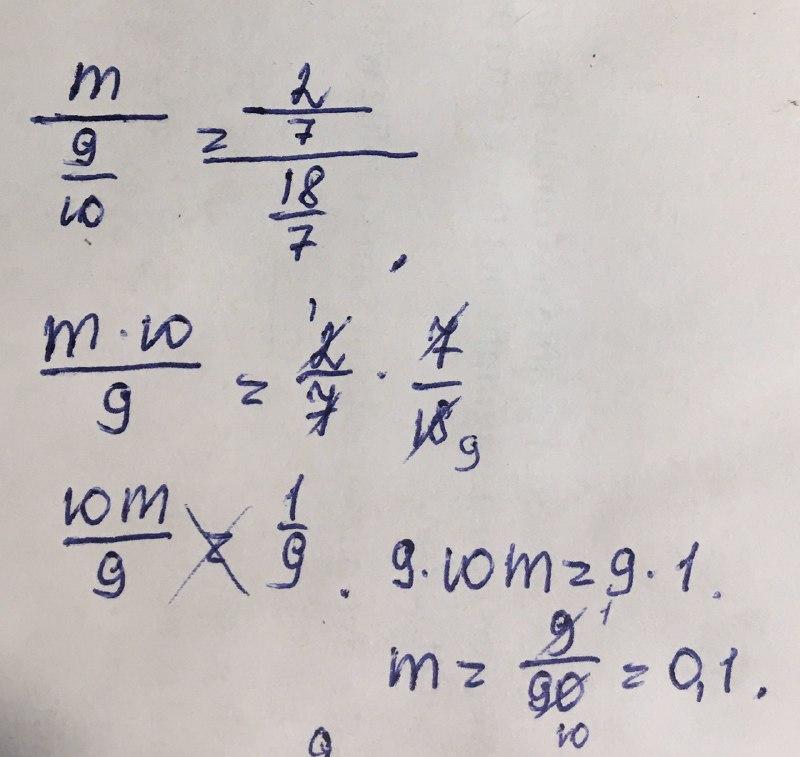 m/(9/10) = (2/7)/(18/7).
m·10/9 = 2/7 · 7/18 1 9
10m/9 = 1/9. 9·10m=9·1.
m = 9/90 1 10 = 0,1.
9